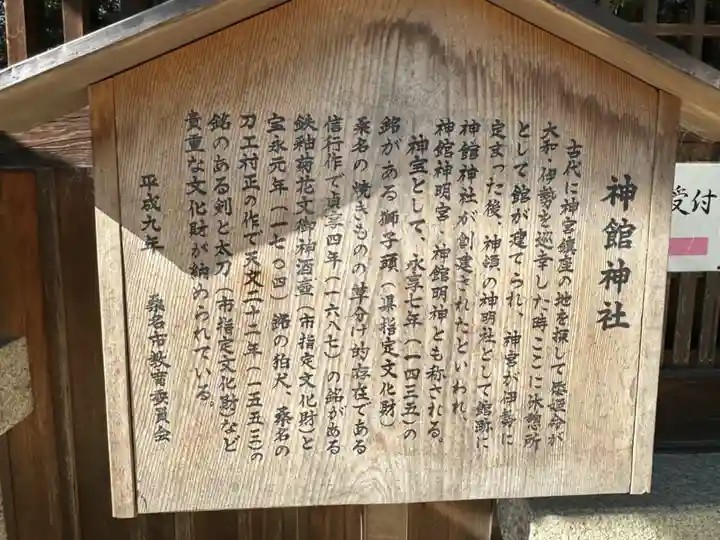 神館神社
古代に神宮鎮座の地を探して倭姫命が
大和・伊勢を巡幸した時ここに休憩所
として館が建てられ、神宮が伊勢に
定まった後、神領の神明社として館跡に
神館神社が創建されたといわれ、
神館神明宮、神館明神とも称される。
神宝として、永享七年（一四三五）の
銘がある獅子頭（県指定文化財）
桑名の焼きものの草分け的存在である
信行作で貞享四年（一六八七）の銘がある
鉄釉菊花文御神酒壺（市指定文化財）と
宝永元年（一七〇四）銘の狛犬、桑名の
刀工村正の作で天文二十二年（一五五三）の
銘のある剣と太刀（市指定文化財）など
貴重な文化財が納められている。
平成九年　桑名市教育委員会
受付